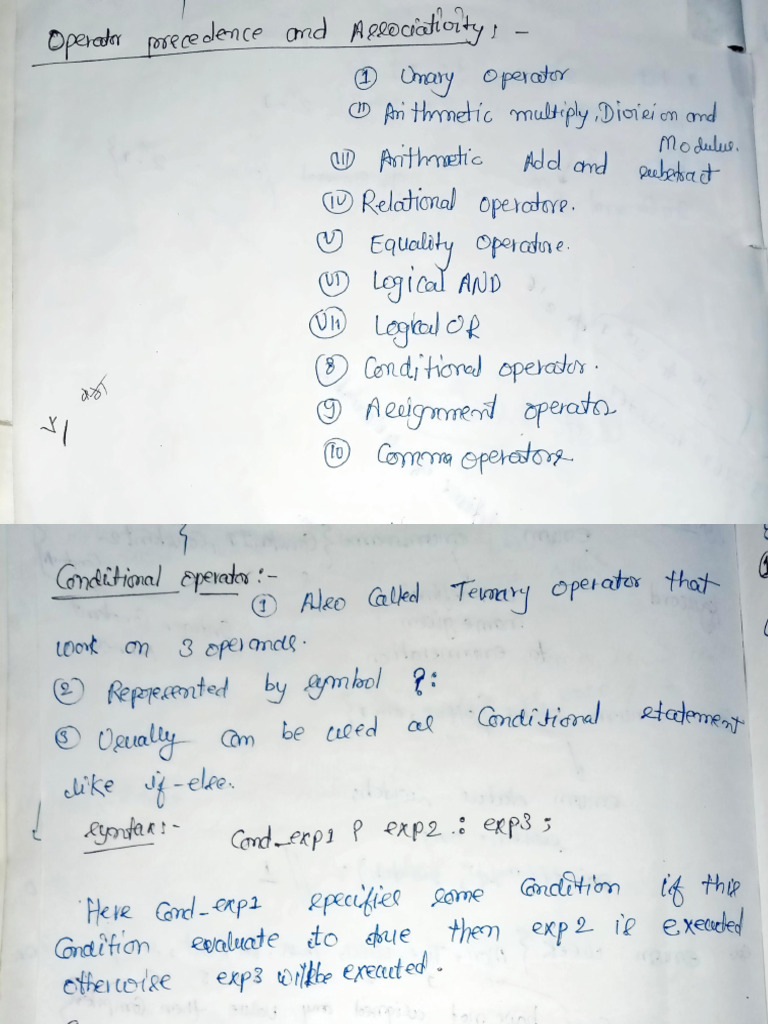 Operator precedence and Associativity:-
① Unary operator
② Arithmetic multiply, Division and
Modulus.
Ⅲ Arithmetic Add and subtract
Ⅳ Relational operators.
Ⅴ Equality Operators.
Ⅵ Logical AND
Ⅶ Logical OR
⑧ Conditional operator.
⑨ Assignment operator
⑩ Comma operators
Conditional operator:-
① Also Called Ternary operator that
work on 3 operands.
② Represented by symbol ?:
③ Usually can be used as Conditional statement
like if-else.
Syntax:- Cond_exp1 ? exp2 : exp3;
Here Cond_exp1 specifies some Condition if this
Condition evaluate to true then exp2 is executed
otherwise exp3 will be executed.